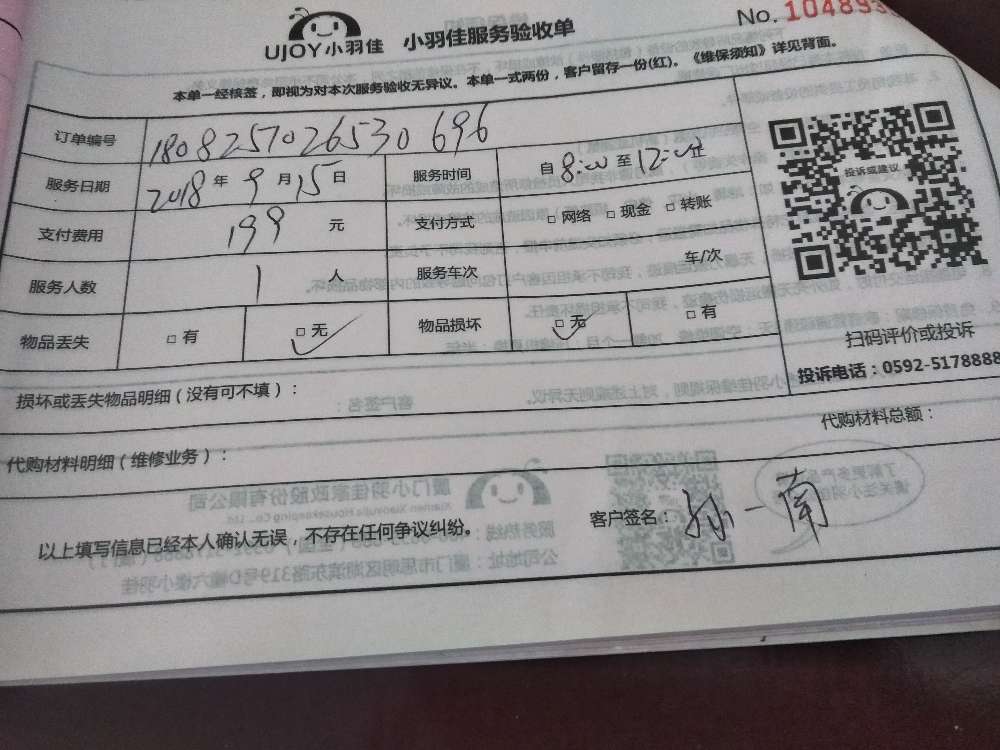 UJOY小羽佳 小羽佳服务验收单 No. 104893
本单一经核签，即视为对本次服务验收无异议。本单一式两份，客户留存一份(红)。《维保须知》详见背面。
订单编号 1808257026530696
服务日期 2018年9月15日 服务时间 自8:00至12:00分
支付费用 199 元 支付方式 □ 网络 □ 现金 □ 转账
服务人数 1 人 服务车次 车/次
物品丢失 □ 有 □ 无 ✓ 物品损坏 □ 无 ✓ □ 有
投诉或建议
扫码评价或投诉
投诉电话：0592-5178888
损坏或丢失物品明细（没有可不填）：
代购材料明细（维修业务）： 代购材料总额：
以上填写信息已经本人确认无误，不存在任何争议纠纷。 客户签名：孙一南